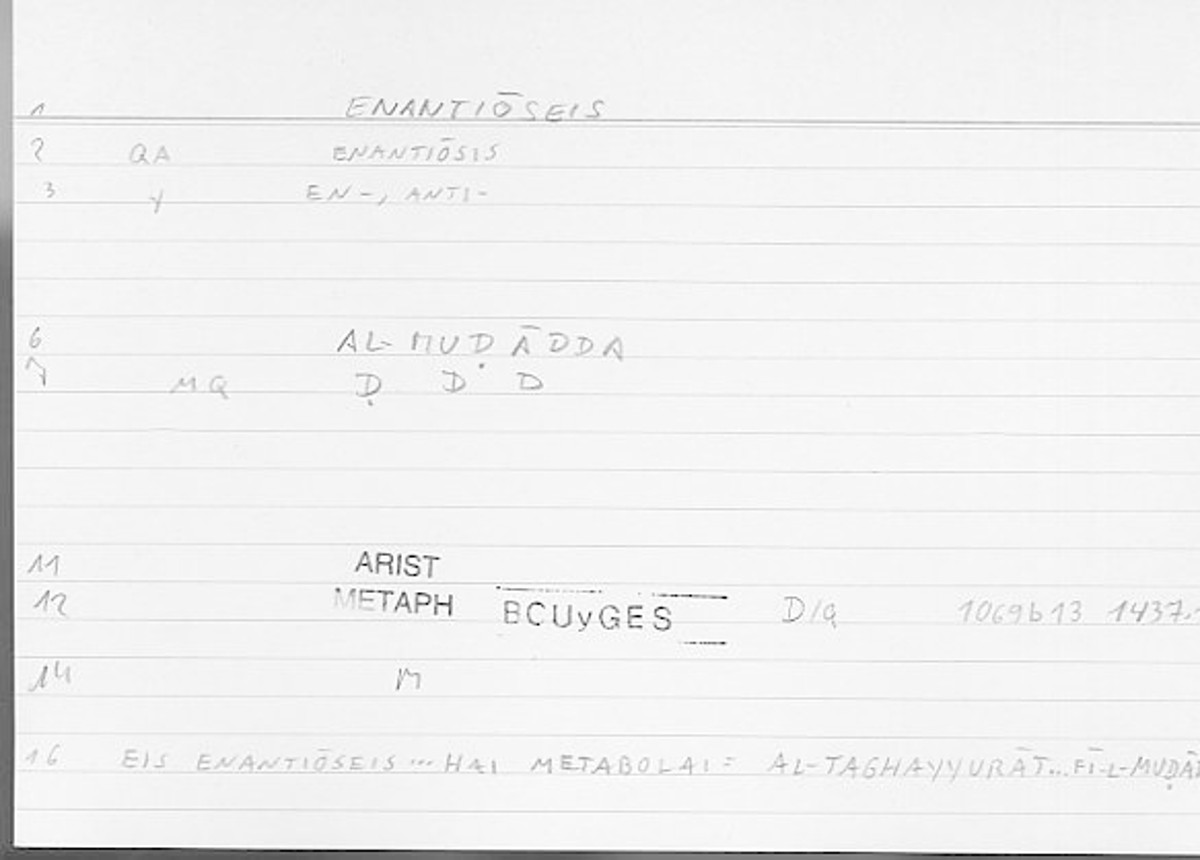 1 ENANTIŌSEIS
2 QA ENANTIŌSIS
3 y EN-, ANTI-
6 AL-MUḌĀDDA
7 MQ Ḍ D D
11 ARIST
12 METAPH BCUyGES D/q 1069b13 1437.
14 M
16 EIS ENANTIŌSEIS...HAI METABOLAI = AL-TAGHAYYURĀT...FĪ-L-MUḌĀD